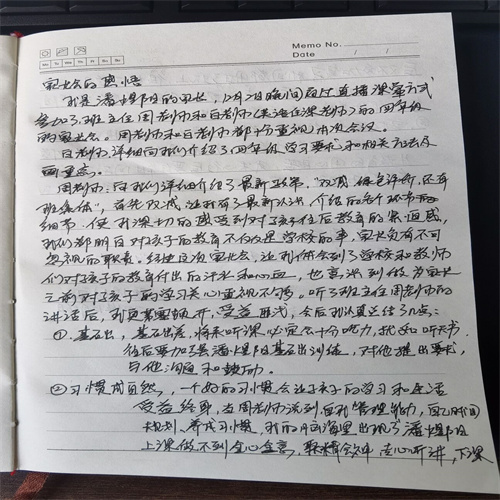 Memo No.
Date / /
Mo Tu We Th Fr Sa Su
家长会的感悟
我是潘煜郢的家长，12月2日晚间通过直播课堂方式
参加了班主任周老师和白老师(英语任课老师)的四年级
的家长会。周老师和白老师都十分重视本次会议。
白老师：详细向我们介绍了四年级学习要求和相关方法及
重点。
周老师：向我们详细介绍了最新政策。“双减，绿色评价，还有
班集体”，首先双减，让我有了最新认识，介绍的各个环节和
细节，使我深切的感受到对了孩子往后教育的紧迫感，
我们都明白对孩子的教育不仅仅是学校的事，家长负有不可
忽视的职责。经过这次家长会，让我体会到了学校和教师
们对孩子的教育付出的汗水和心血，也意识到做为家长
之前对孩子的学习关心重视不够。听了班主任周老师的
讲话后，我顿茅塞顿开，受益匪浅，会后我认真总结了几点：
①、基础，基础差，将来听课必定会十分吃力，犹如听天书，
往后要加强潘煜郢基础训练，对他提出要求，
与他沟通和鼓励。
②习惯成自然，一个好的习惯会让孩子的学习和生活
受益终身，当周老师说到自我管理能力，自己时间
规划、养成习惯，我的脑海里出现了潘煜郢
上课做不到全心全意，聚精会神 去心听讲，下课